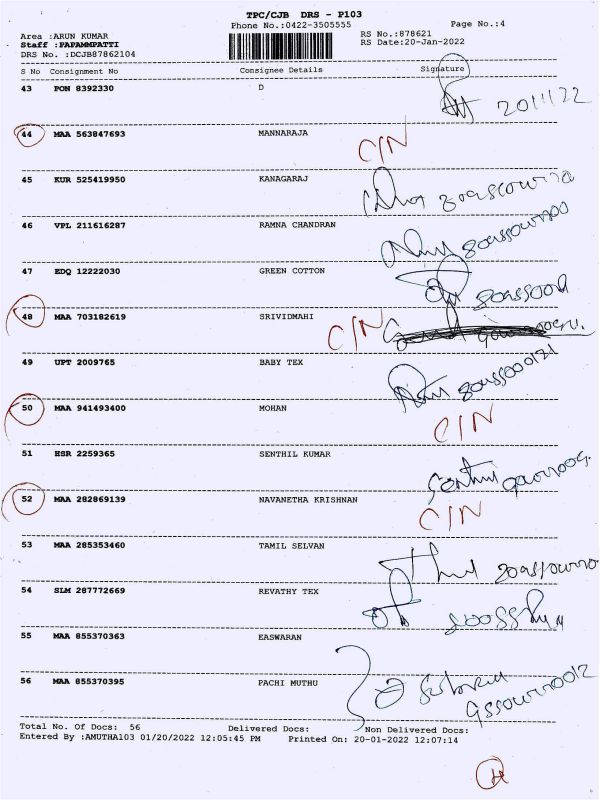 TPC/CJB DRS - P103
Phone No.:0422-3505555
Page No.:4
Area :ARUN KUMAR
RS No.:878621
Staff :PAPAMMPATTI
RS Date:20-Jan-2022
DRS No. :DCJB87862104
S No Consignment No Consignee Details Signature
43 PON 8392330 D
20/1/22
44 MAA 563847693 MANNARAJA
C/N
45 KUR 525419950 KANAGARAJ
46 VPL 211616287 RAMNA CHANDRAN
47 EDQ 12222030 GREEN COTTON
48 MAA 703182619 SRIVIDMAHI
C/N
49 UPT 2009765 BABY TEX
50 MAA 941493400 MOHAN
C/N
51 HSR 2259365 SENTHIL KUMAR
52 MAA 282869139 NAVANETHA KRISHNAN
C/N
53 MAA 285353460 TAMIL SELVAN
54 SLM 287772669 REVATHY TEX
55 MAA 855370363 EASWARAN
56 MAA 855370395 PACHI MUTHU
Total No. Of Docs: 56 Delivered Docs: Non Delivered Docs:
Entered By :AMUTHA103 01/20/2022 12:05:45 PM Printed On: 20-01-2022 12:07:14